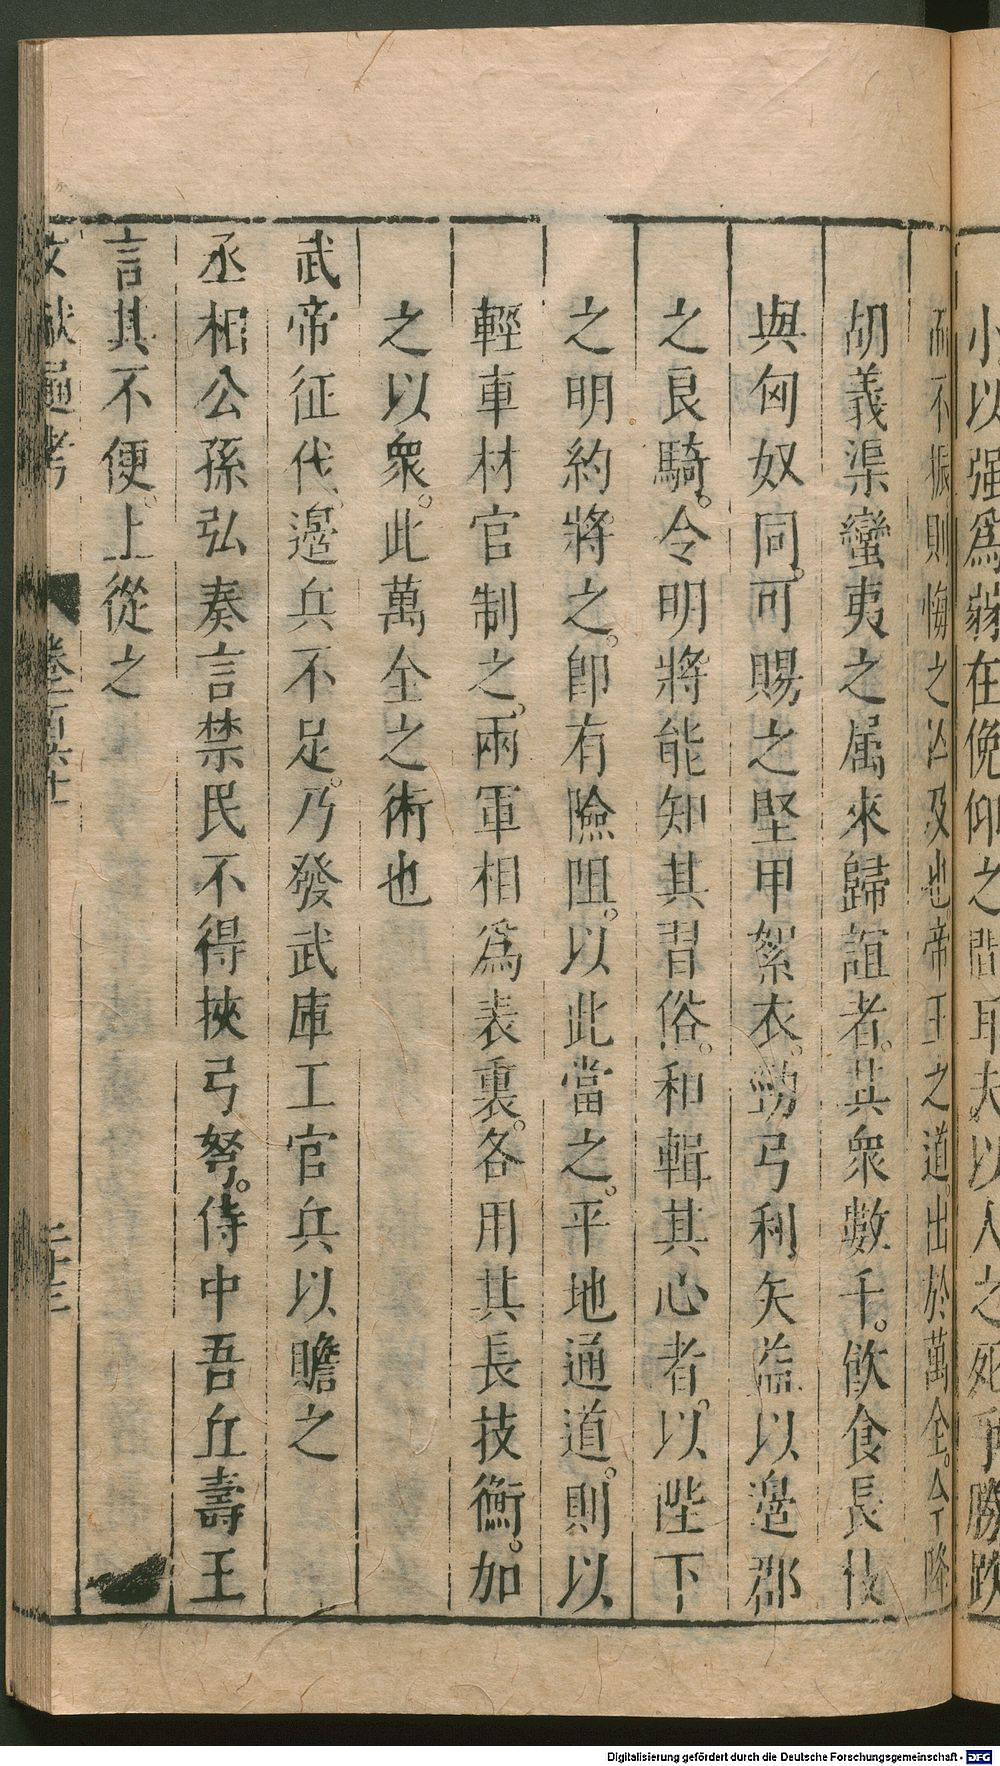 小以强爲弱在俛仰之間耳夫以人之死爭勝跌
而不振則悔之亡及也。帝王之道。出於萬全。今降
胡義渠蠻夷之屬來歸誼者。其衆數千。飲食長技
與匈奴同。可賜之堅甲絮衣。勁弓利矢。益以邊郡
之良騎。令明將能知其習俗。和輯其心者。以陛下
之明約將之。卽有險阻。以此當之。平地通道。則以
輕車材官制之。兩軍相爲表裏。各用其長技衡。加
之以衆。此萬全之術也
武帝征伐。邊兵不足。乃發武庫工官兵以贍之
丞相公孫弘奏言禁民不得挾弓弩。侍中吾丘壽王
言其不便。上從之
文獻通考 卷一百六十一 二十三
Digitalisierung gefördert durch die Deutsche Forschungsgemeinschaft - DFG